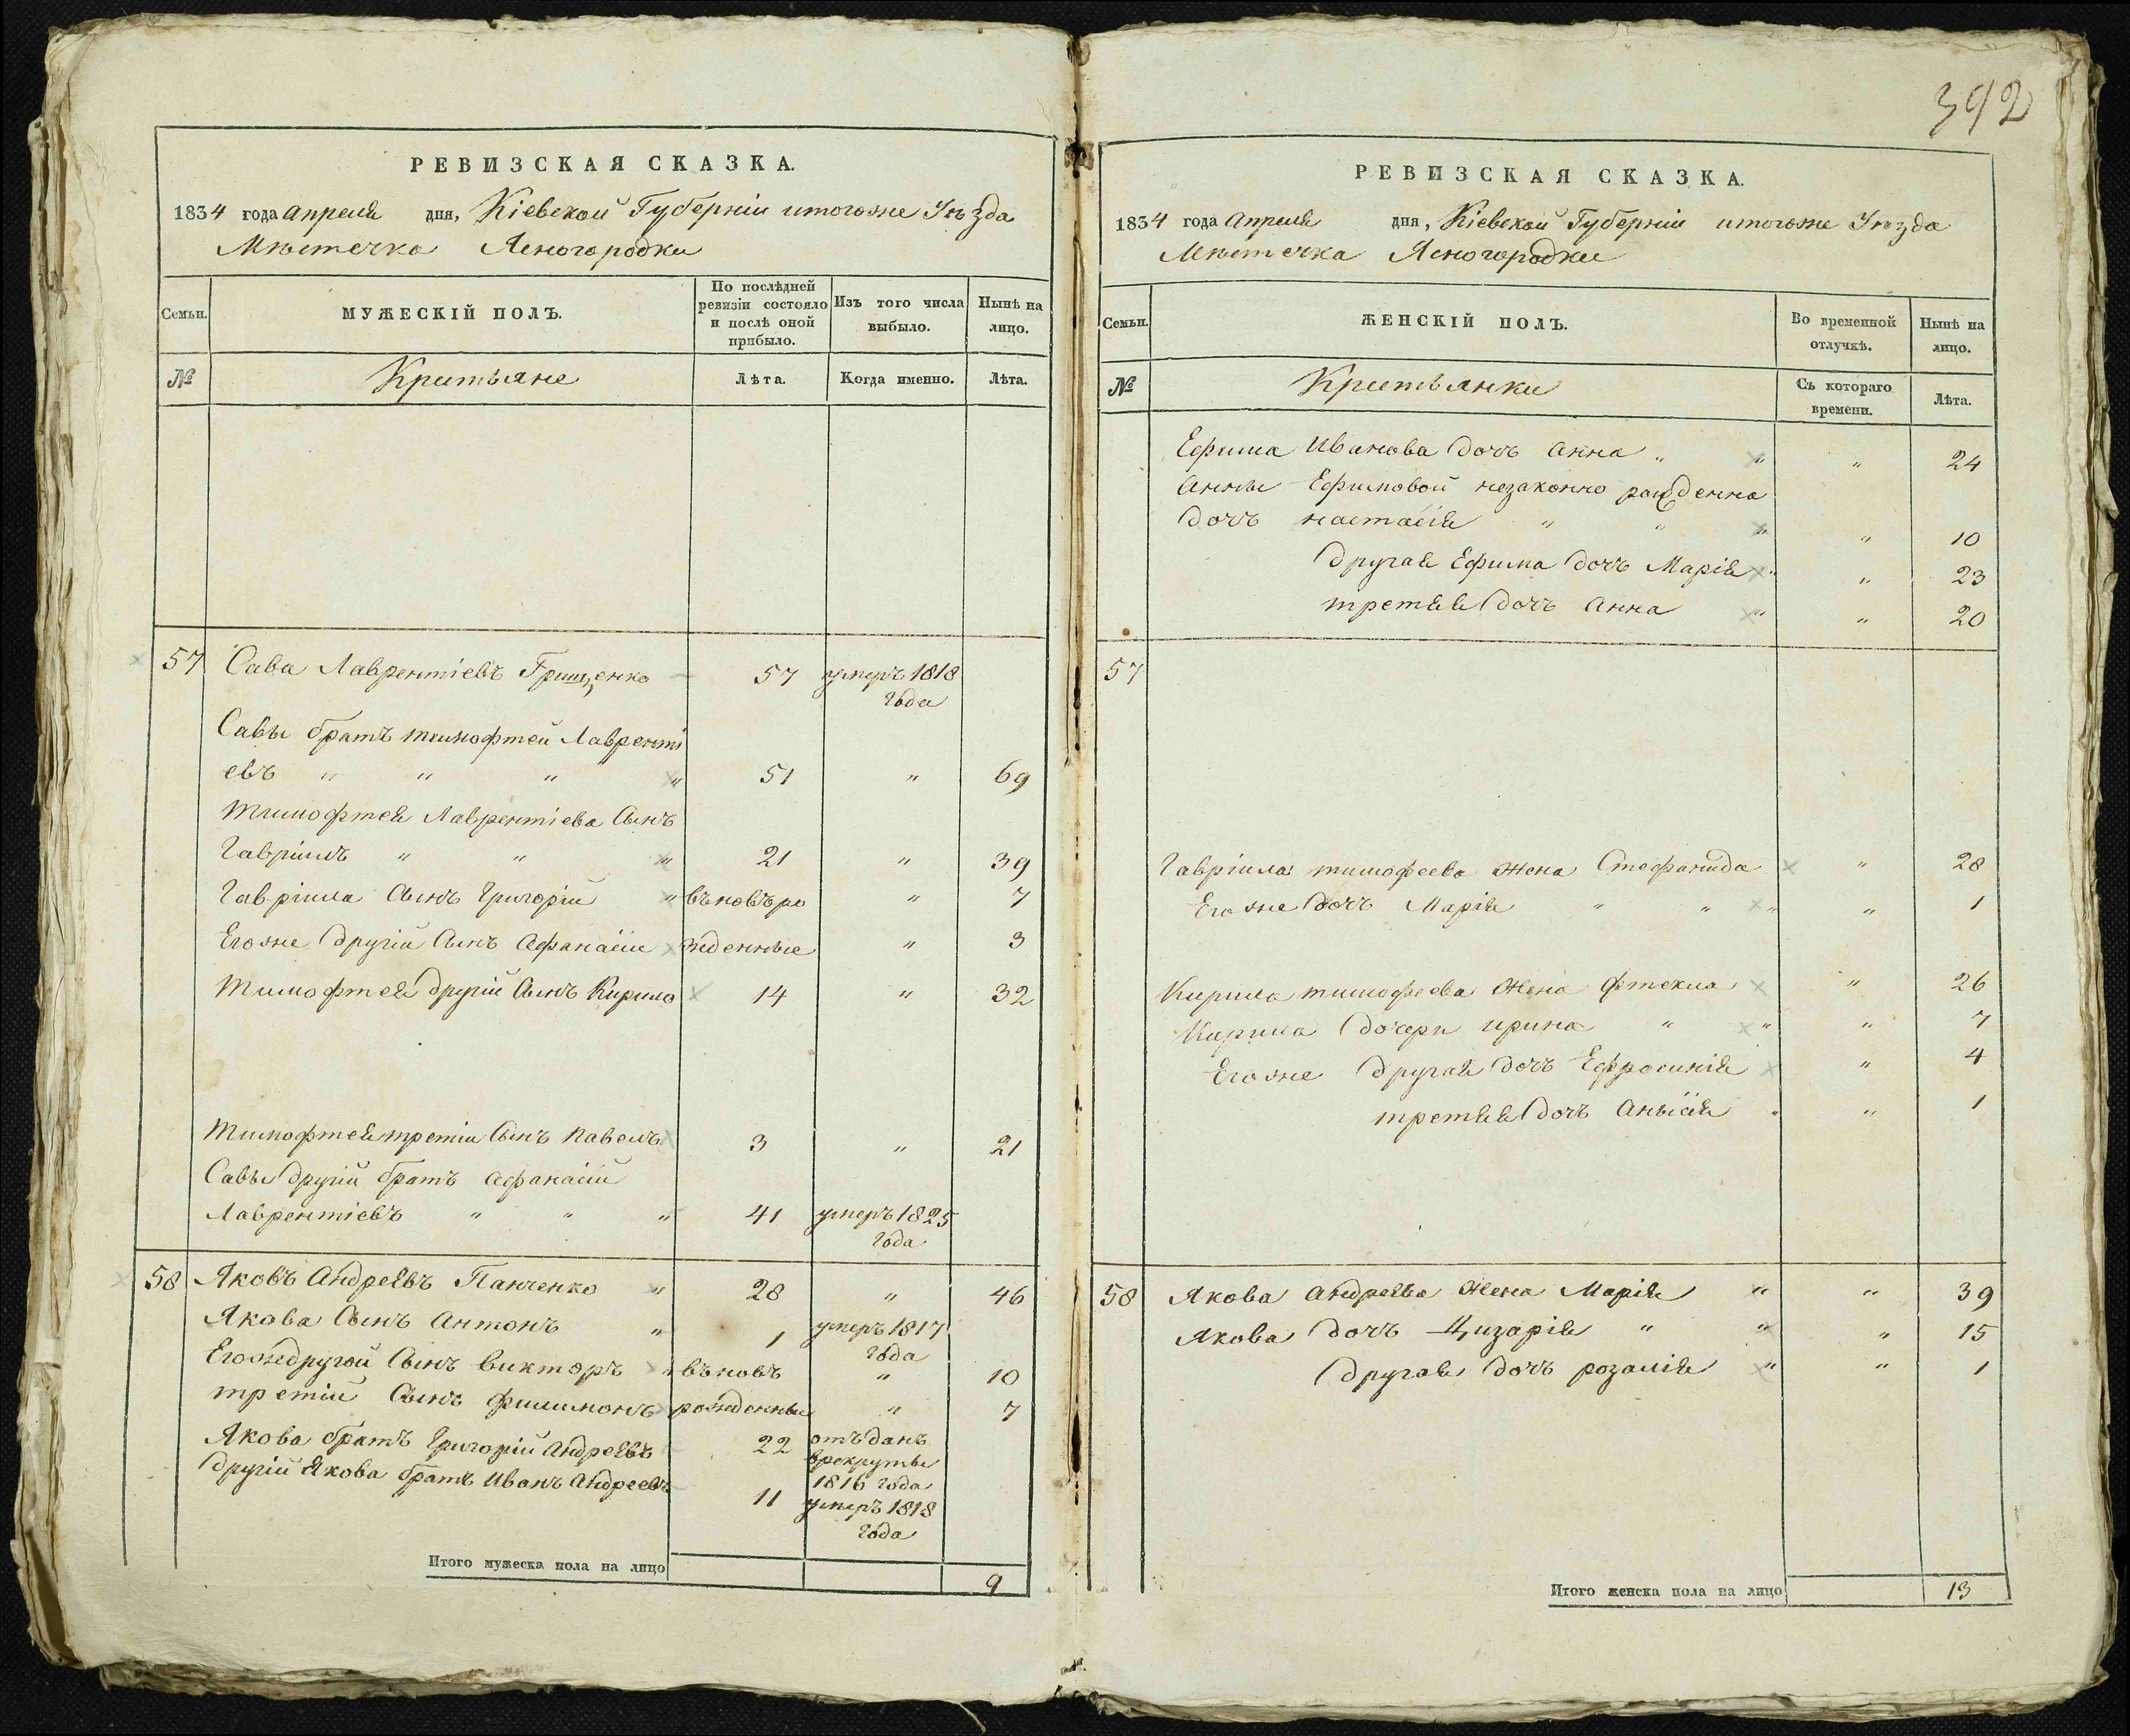 392
РЕВИЗСКАЯ СКАЗКА.
1834 года апреля дня, Кіевской Губерніи итогоже Уѣзда
Мѣстечка Ясногородки
Семьи.
МУЖЕСКІЙ ПОЛЪ.
По послѣдней ревизіи состояло и послѣ оной прибыло.
Изъ того числа выбыло.
Нынѣ на лицо.
№
Крестьяне
Лѣта.
Когда именно.
Лѣта.
57 Сава Лаврентіевъ Грищенко 57 умеръ 1818
года
Савы братъ тимофтей Лаврентi
евъ " " " " 51 " 69
Тимофтея Лаврентіева Сынъ
Гавріилъ " " " 21 " 39
Гавріила Сынъ Григорій " въновъро " 7
Егоже другій Сынъ Афанасій жденные " 3
Тимофтея другій Сынъ Кирило 14 " 32
Тимофтея третій Сынъ Павелъ 3 " 21
Савы другій братъ Афанасій
Лаврентіевъ " " " 41 умеръ 1825
года
58 Яковъ Андреевъ Панченко " 28 " 46
Якова Сынъ Антонъ " 1 умеръ 1817
года
Егоже другой Сынъ викторъ " въновъ " 10
третій Сынъ филимонъ рожденные " 7
Якова братъ Григорій Андреевъ 22 отъданъ
врекруты
1816 года
другій Якова братъ Иванъ Андреевъ 11 умеръ 1818
года
Итого мужеска пола на лицо 9
РЕВИЗСКАЯ СКАЗКА.
1834 года апреля дня, Кіевской Губерніи итогоже Уѣзда
Мѣстечка Ясногородки
Семьи.
ЖЕНСКІЙ ПОЛЪ.
Во временной отлучкѣ.
Нынѣ на лицо.
№
Крестьянки
Съ котораго времени.
Лѣта.
Ефима Иванова дочъ Анна " " " 24
Анны Ефимовой незаконно рожденна
дочъ настасія " " " " 10
другая Ефима дочъ Марія " " 23
третяя дочъ Анна " " 20
57
Гавріила тимофеева жена Стефанида " 28
Егоже дочъ Марія " " " " 1
Кирила тимофеева жена фтекла " 26
Кирила дочери ирина " " " 7
Егоже другая дочъ Ефросинія " 4
третяя дочъ Анысія " " 1
58 Якова Андреева жена Марія " " 39
Якова дочъ Цизарія " " " 15
другая дочъ розалія " " 1
Итого женска пола на лицо 13